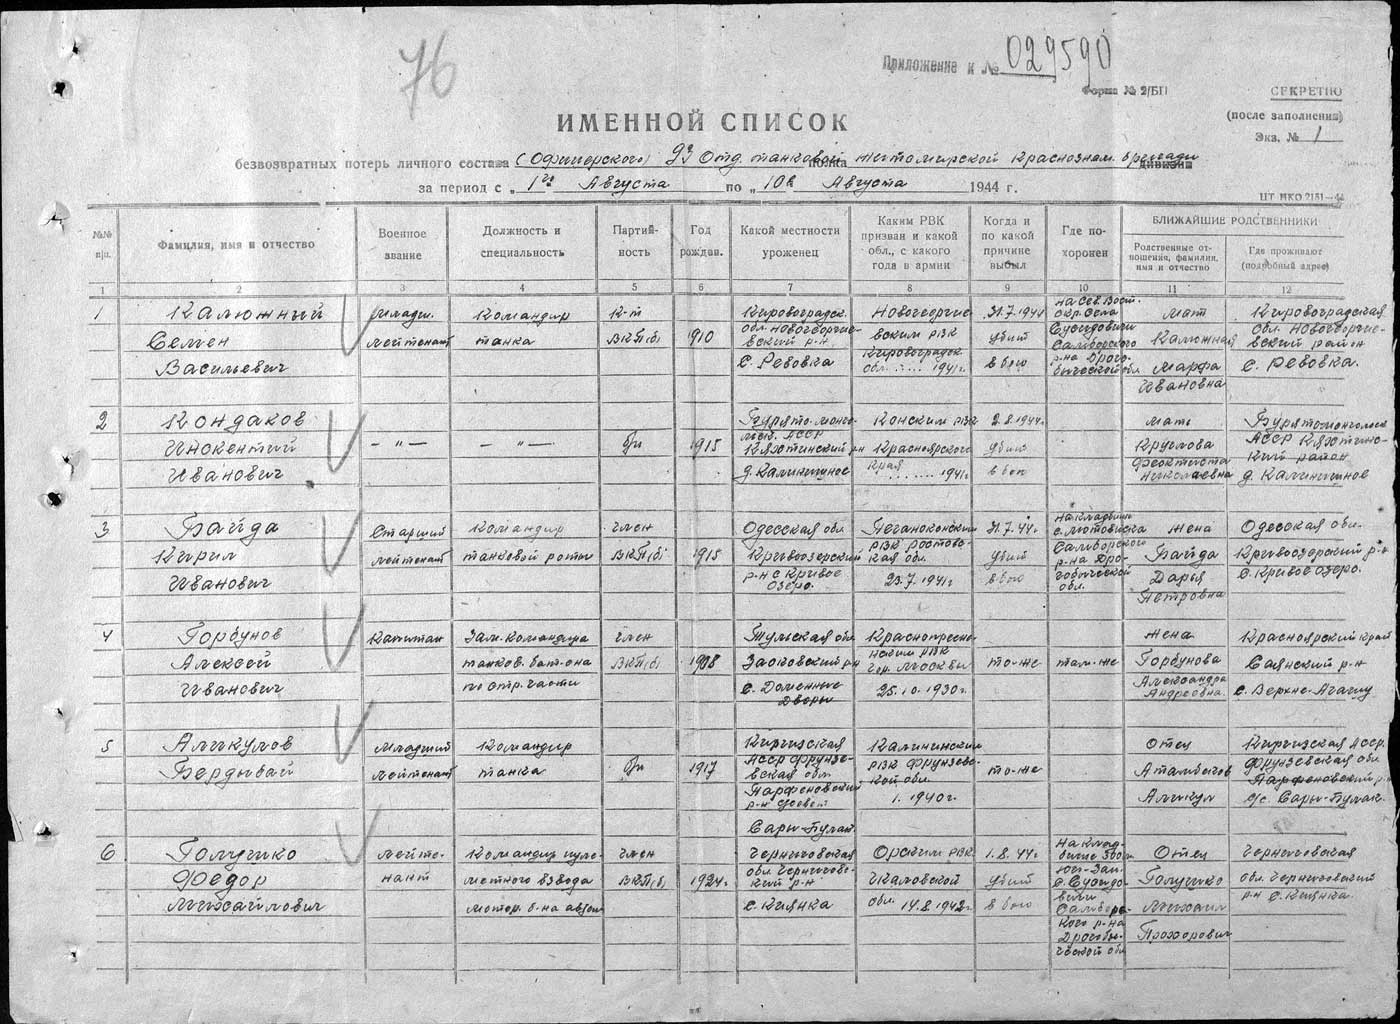 76
Приложение к № 029590
Форма № 2/БП
СЕКРЕТНО
(после заполнения)
Экз. № 1
ИМЕННОЙ СПИСОК
безвозвратных потерь личного состава (офицерского) 93 Отд. танковой Житомирской Краснознам. бригады
за период с „1го Августа по „10е Августа 1944 г.
ЦТ НКО 2151—44
№№ п/п.
Фамилия, имя и отчество
Военное звание
Должность и специальность
Партийность
Год рожден.
Какой местности уроженец
Каким РВК призван и какой обл., с какого года в армии
Когда и по какой причине выбыл
Где похоронен
БЛИЖАЙШИЕ РОДСТВЕННИКИ
Родственные отношения, фамилия, имя и отчество
Где проживают (подробный адрес)
1 2 3 4 5 6 7 8 9 10 11 12
1 Калюжный Младш. Командир К-т Кировоградск. Новогеоргие- 31.7.1944 на Сев. Вост. мат Кировоградская
Семен лейтенант танка ВКП(б) 1910 обл. Новогеоргиевский р-н вским РВК убит окр. села Самборского Калюжная обл. Новогеоргиевский район
Васильевич с. Ревовка Кировоградск обл. 1941г. в бою р-на Дрогобыческой обл. Марфа с. Ревовка.
Ивановна
2 Кондаков Бурято-Монго- Канским РВК 2.8.1944г. мать Бурятомонгольск
Инокентий — „ — — „ — б/п 1915 льск. АССР Кяхтинский рн Красноярского убит Круглова АССР Кяхтинский район
Иванович д. Калинишное края 1941г в бою Феоктиста Николаевна д. Калинишное
3 Байда Старший Командир член Одесская обл 31.7.44г. на кладбище жена Одесская обл.
Кирил лейтенант танковой роты ВКП(б) 1915 Кривоозерский РВК Ростовская обл. убит Самборского Байда Кривоозерский р-н
Иванович р-н с Кривое Озеро. 23.7.1941г в бою р-на Дрогобыческой обл. Дарья с. Кривое Озеро.
Петровна
4 Горбунов Капитан Зам. командира член Тульская обл Краснопресне- жена Красноярский край
Алексей танков. бат-она ВКП(б) 1908 Заокский р-н нским РВК гор. Москвы то-же там-же Горбунова Саянский р-н
Иванович по стр. части с. Доменные Дворы 25.10.1930г. Александра Андреевна. с. Верхне-Агашу
5 Аликулов Младший Командир Киргизская Калининским отец Киргизская АССР.
Бердыбай лейтенант танка б/п 1917 АССР Фрунзевская обл. РВК Фрунзевской обл. то-же Фрунзевская обл
Парфеновский р-н 1.1940г. Аликул Парфеновский р-н
Сары-Булак с/с. Сары-Булак.
6 Голушко лейте- Командир пуле- член Черниговская Орским РВК 1.8.44г. на кладбище отец Черниговская
Федор нант метного взвода ВКП(б) 1924г. обл. Черниговский р-н Чкаловской убит Юго-Зап. Голушко обл. Черниговский
Михайлович мотор. б-на автом с. Киянка обл. 14.8.1942г в бою Самборского р-на Михаил р-н с. Киянка.
Дрогобыческой обл Прохорович